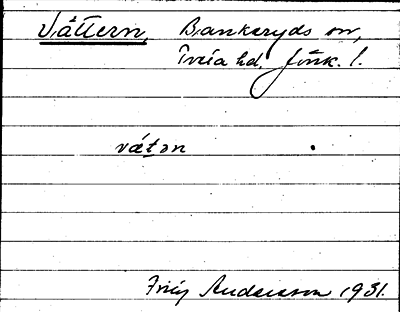 Vättern, Bankeryds sn,
Tveta hd. Jönk. l.
vätən
Frey Andersson 1931.